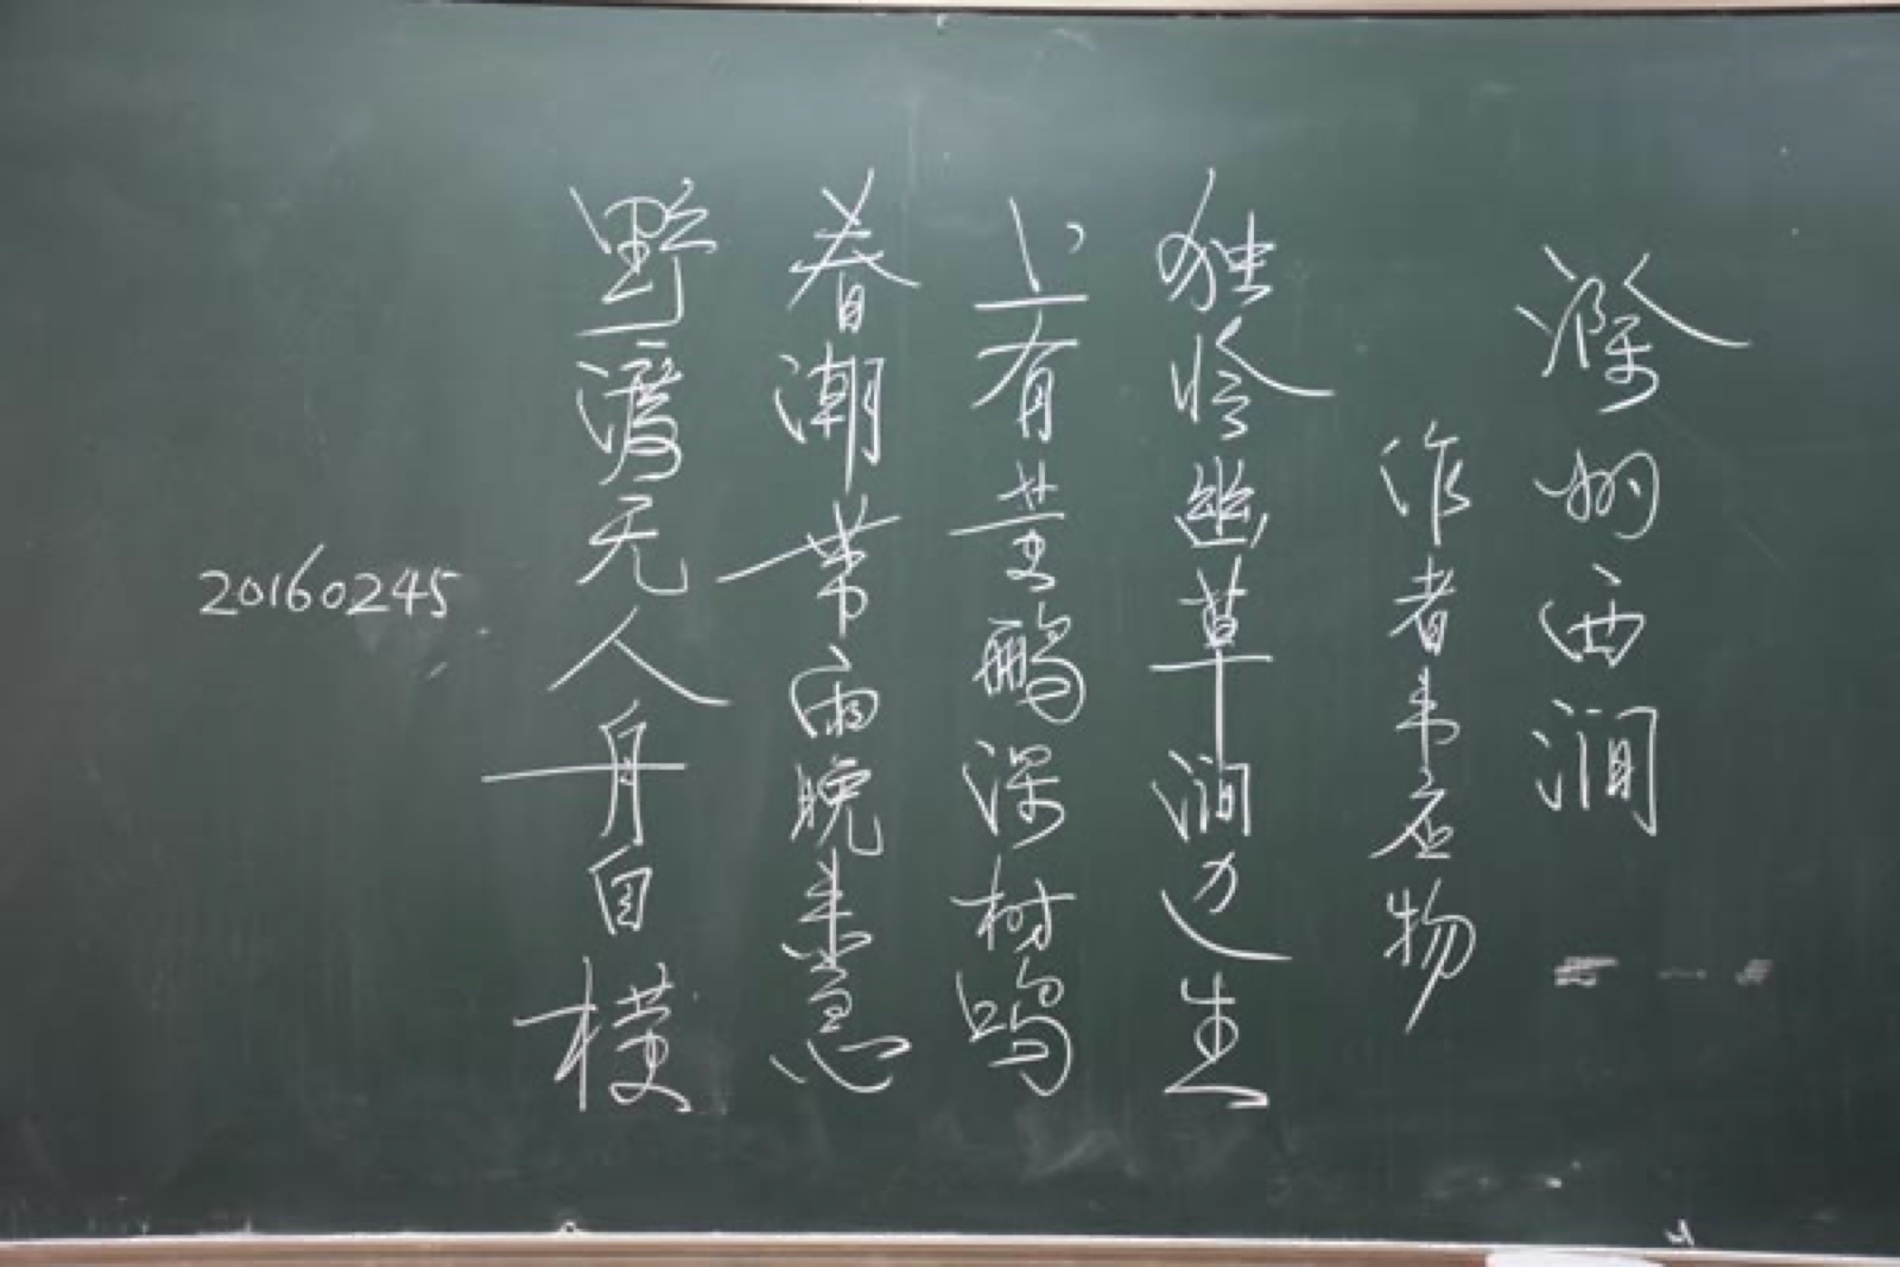 滁州西涧
作者韦应物
独怜幽草涧边生
上有黄鹂深树鸣
春潮带雨晚来急
野渡无人舟自横
20160245